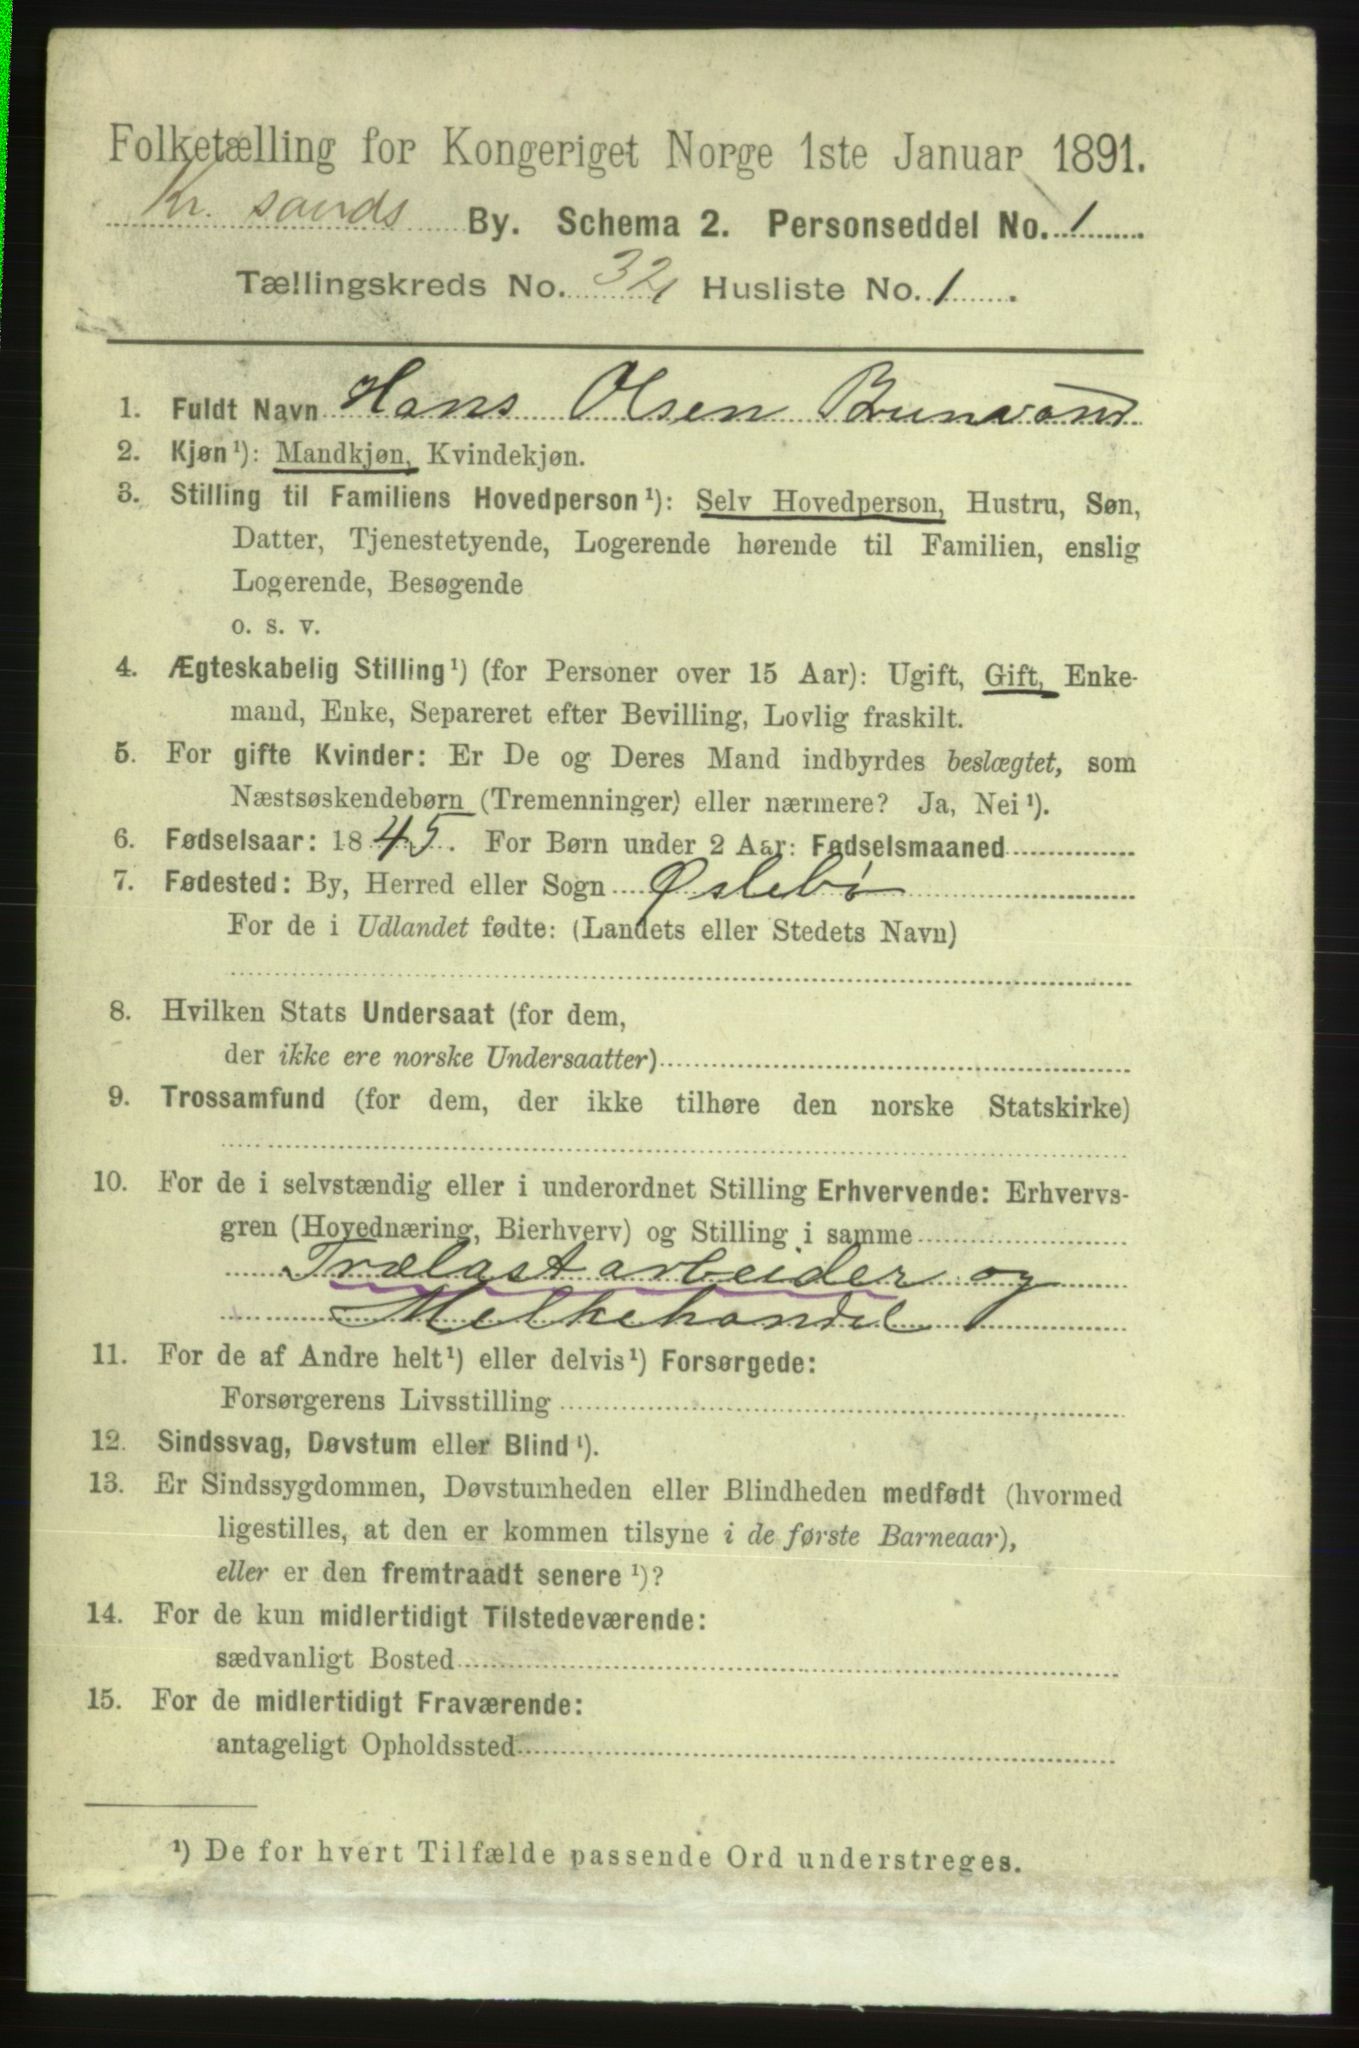 Folketælling for Kongeriget Norge 1ste Januar 1891.
Kr. sands By. Schema 2. Personseddel No. 1.
Tællingskreds No. 32 Husliste No. 1.
1. Fuldt Navn Hans Olsen Brunvand
2. Kjøn¹): Mandkjøn, Kvindekjøn.
3. Stilling til Familiens Hovedperson¹): Selv Hovedperson, Hustru, Søn,
Datter, Tjenestetyende, Logerende hørende til Familien, enslig
Logerende, Besøgende
o. s. v.
4. Ægteskabelig Stilling¹) (for Personer over 15 Aar): Ugift, Gift, Enke-
mand, Enke, Separeret efter Bevilling, Lovlig fraskilt.
5. For gifte Kvinder: Er De og Deres Mand indbyrdes beslægtet, som
Næstsøskendebørn (Tremenninger) eller nærmere? Ja, Nei¹).
6. Fødselsaar: 1845. For Børn under 2 Aar: Fødselsmaaned
7. Fødested: By, Herred eller Sogn Øslebø
For de i Udlandet fødte: (Landets eller Stedets Navn)
8. Hvilken Stats Undersaat (for dem,
der ikke ere norske Undersaatter)
9. Trossamfund (for dem, der ikke tilhøre den norske Statskirke)
10. For de i selvstændig eller i underordnet Stilling Erhvervende: Erhvervs-
gren (Hovednæring, Bierhverv) og Stilling i samme
Trælastarbeider og
Melkehandel
11. For de af Andre helt¹) eller delvis¹) Forsørgede:
Forsørgerens Livsstilling
12. Sindssvag, Døvstum eller Blind¹).
13. Er Sindssygdommen, Døvstumheden eller Blindheden medfødt (hvormed
ligestilles, at den er kommen tilsyne i de første Barneaar),
eller er den fremtraadt senere¹)?
14. For de kun midlertidigt Tilstedeværende:
sædvanligt Bosted
15. For de midlertidigt Fraværende:
antageligt Opholdssted
¹) De for hvert Tilfælde passende Ord understreges.